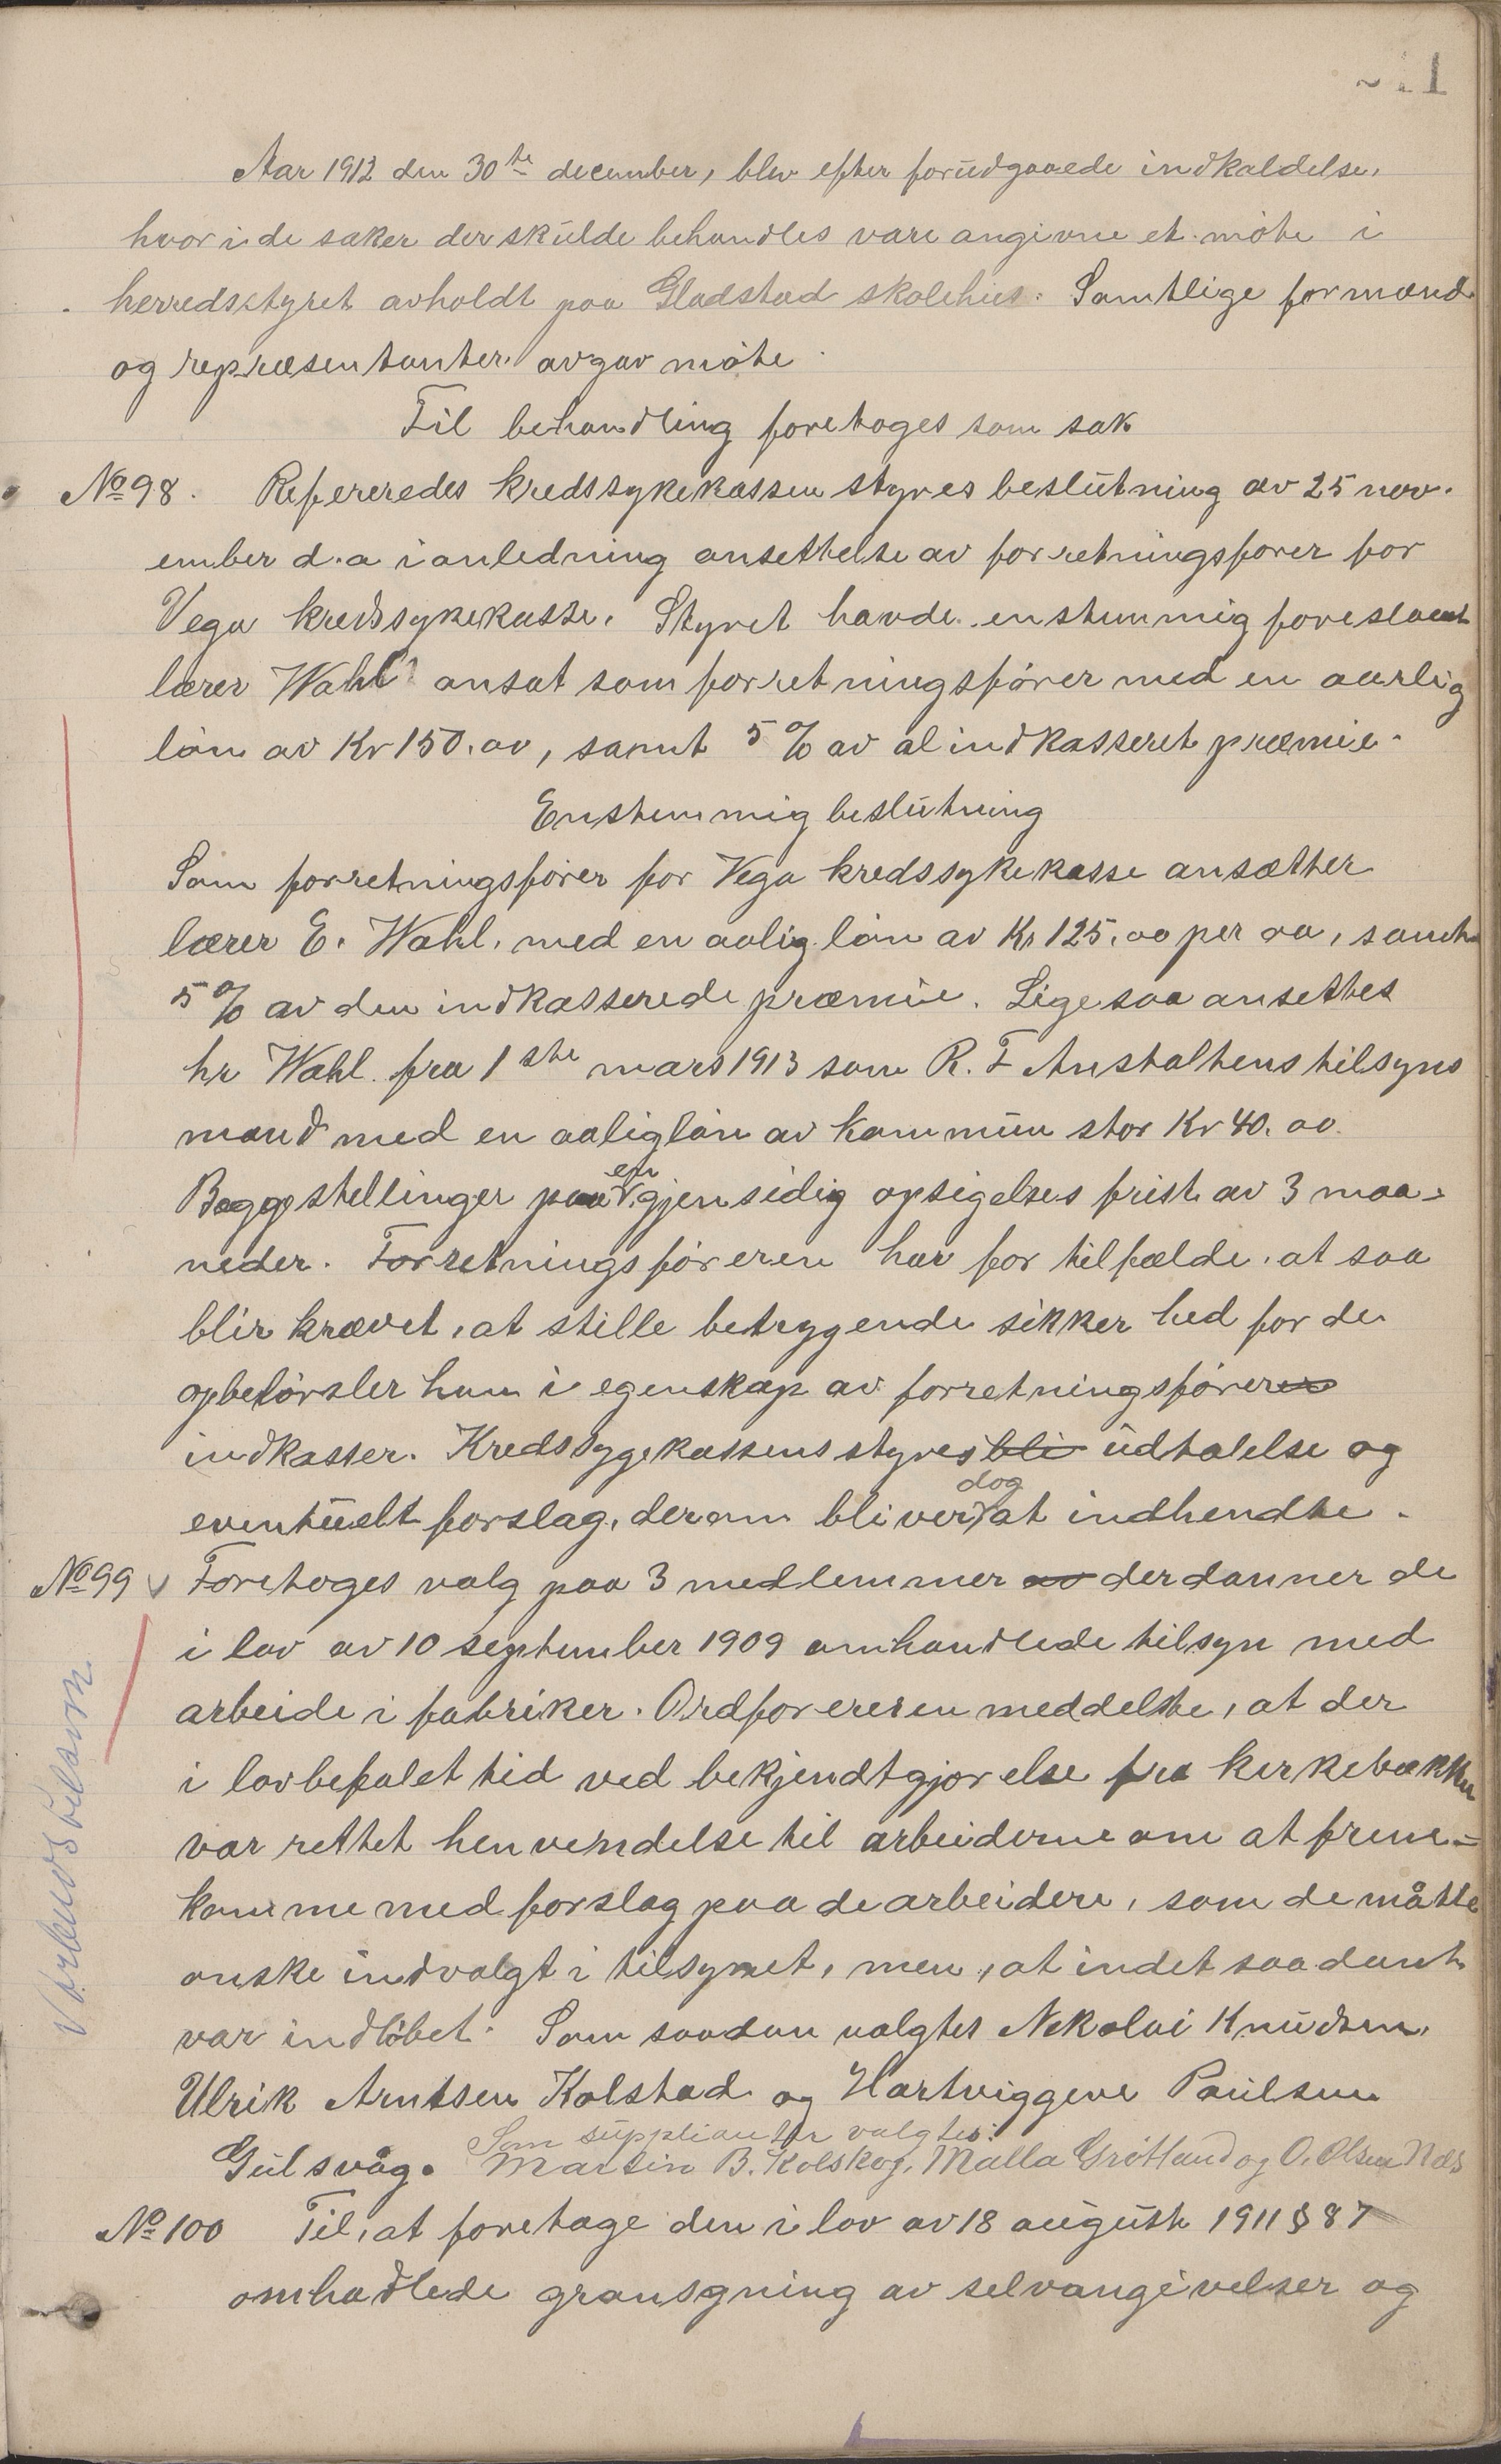 Aar 1912 den 30te december, blev efter forudgaaede indkaldelse,
hvor i de saker der skulde behandles vare angivne et møte i
herredsstyret avholdt paa Gladstad skolehus. Samtlige formænd
og repræsentanter avgav møte
Til behandling foretoges som sak
No 98. Refereredes kredssykekassen styres beslutning av 25 nov.
ember d.a i anledning ansettelse av forretningsforer for
Vega kredssykekasse. Styret havde enstemmig foreslaaet
lærer Wahl ansat som forretningsfører med en aarlig
løn av Kr 150.oo, samt 5 % av al indkasseret præmie.
Enstemmig beslutning
Som forretningsfører for Vega kredssykekasse ansætter
lærer E. Wahl, med en aalig løn av Kr 125.oo per aa, samt
5 % av den indkasserede præmie. Ligesaa ansettes
hr Wahl fra 1ste mars 1913 som R. F Anstaltens tilsyns
mand med en aalig løn av kommun stor Kr 40.oo
Begge stellinger paa en gjensidig opsigelses frist av 3 maa=
neder. Forretningsføreren har for tilfælde at saa
blir krævet, at stille betryggende sikker hed for de
opbetørsler han i egenskap av forretningsfører
indkasser. Kredssygekassens styres bli udtalelse og
eventuelt forslag, derom bliver dog at indhendte.
No 99 v Foretoges valg paa 3 medlemmer av der danner de
i lov av 10 september 1909 omhandlede tilsyn med
arbeide i fabriker. Ordforereren meddelte, at der
i lovbefalet tid ved bekjendtgjørelse fra kirkebakken
var rettet henvendelse til arbeiderne om at frem=
komme med forslag paa de arbeidere, som de måtte
ønske indvalgt i tilsynet, men, at indet saadant
var indløbet. Som saadan valgtes Nekolai Knudsen,
Ulrik Arntsen Kolstad og Hartviggene Paulsen
Som supplianter valgtes:
Gulsvåg. Martin B. Kolskog, Malla Grøttland og O. Olsen Næs
No 100 Til, at foretage den i lov av 18 august 1911 § 87
omhadlede gransgning av selvangivelser og